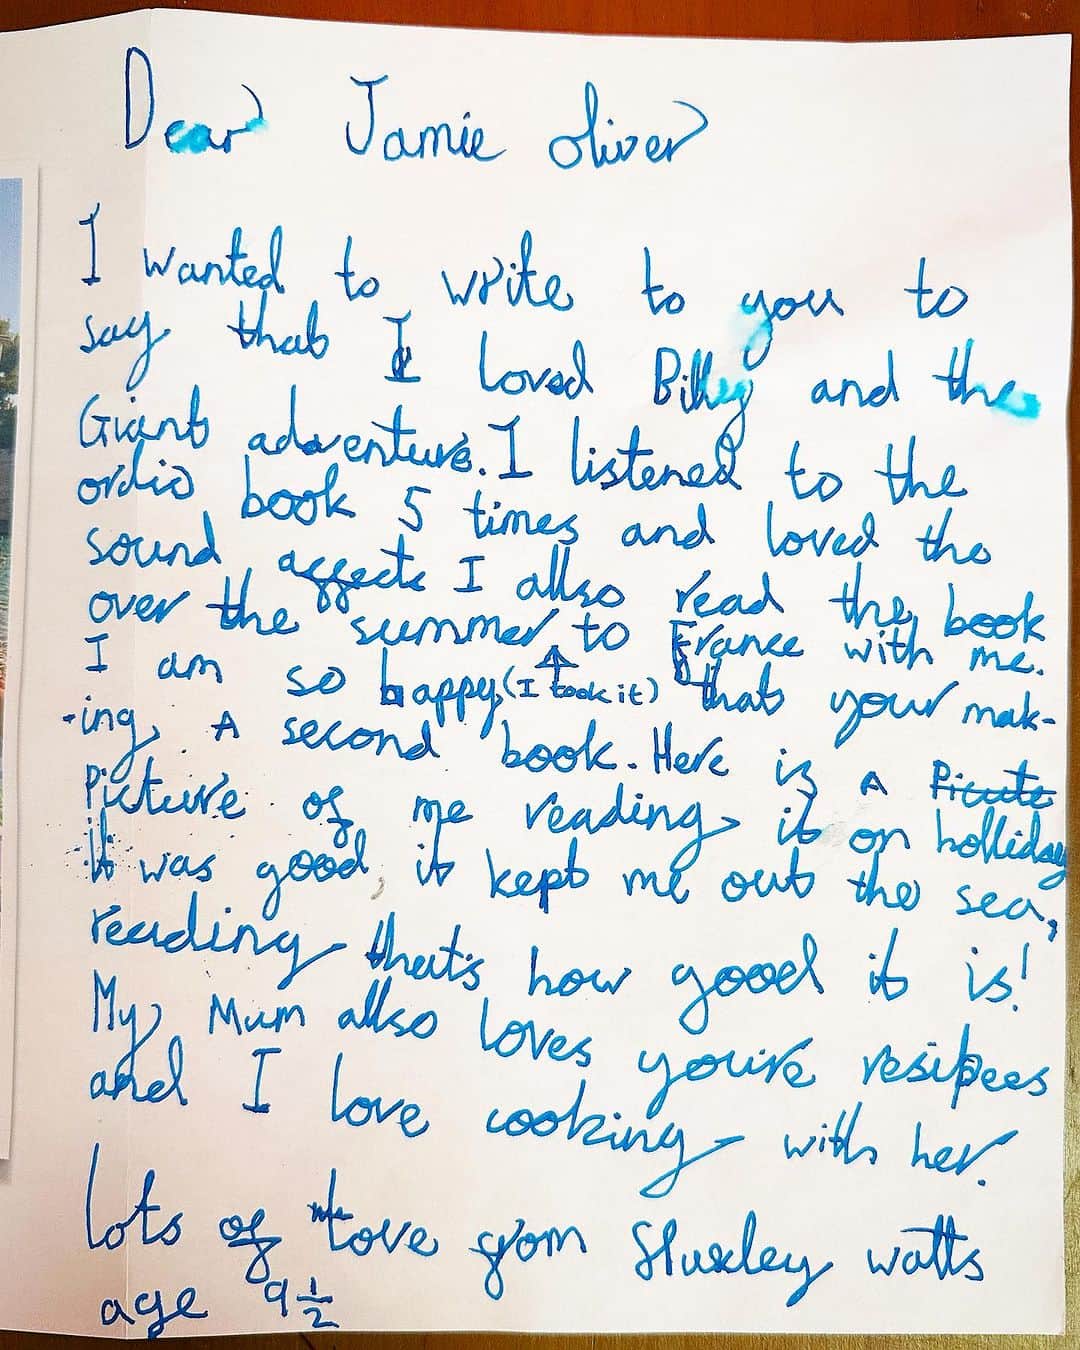 Dear Jamie oliver
I wanted to write to you to
say that I loved Billy and the
Giant adventure. I listened to the
ordio book 5 times and loved the
sound affects I allso read the book
over the summer to France with me.
(I took it)
I am so happy that your mak-
-ing A second book. Here is A Picute
Picture of me reading it on holliday
It was good, it kept me out the sea,
reading that's how good it is!
My Mum allso loves you're resipees
and I love cooking with her.
lots of love from watts
age 9 1/2